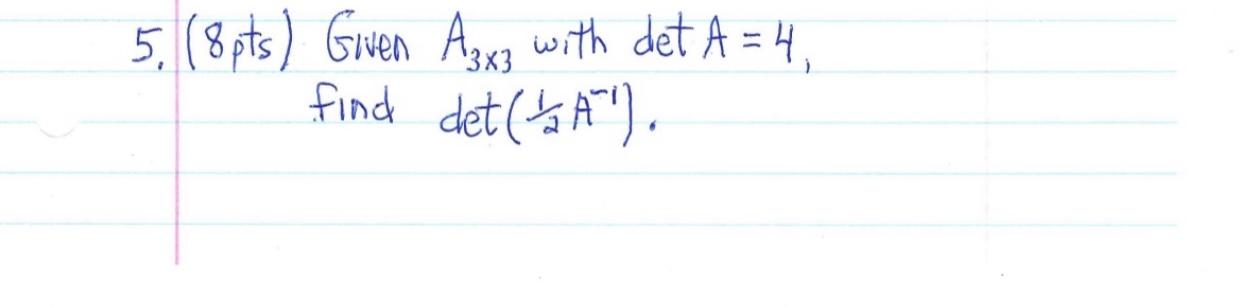 5. (8 pts) Given A₃ₓ₃ with det A = 4,
find det(½ A⁻¹).